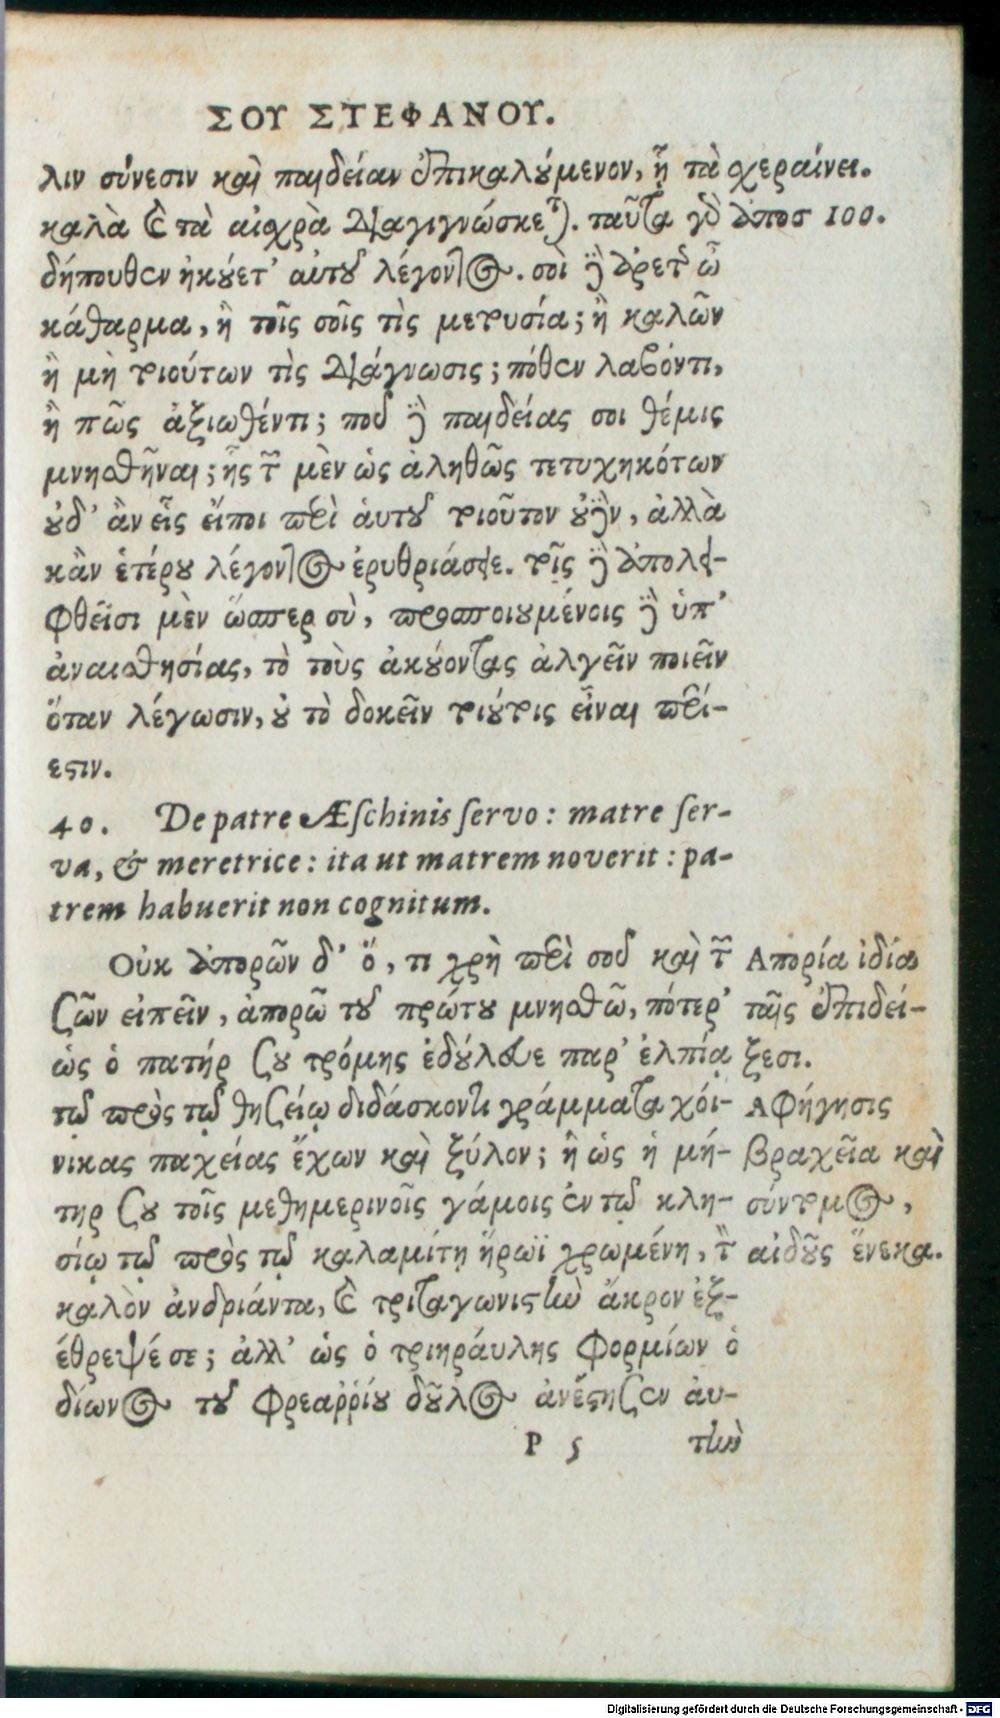 ΣΟΥ ΣΤΕΦΑΝΟΥ.
λιν σύνεσιν καὶ παιδείαν ἐπικαλούμενον, ᾗ τὰ
καλὰ καὶ τὰ αἰσχρὰ διαγιγνώσκεται. ταῦτα γὰρ
δήπουθεν ἠκούετ' αὐτοῦ λέγοντος. σοὶ δὲ ἀρετῆς ὦ
κάθαρμα, ἢ τοῖς σοῖς τὶς μετουσία; ἢ καλῶν
ἢ μὴ τοιούτων τὶς διάγνωσις; πόθεν λαβόντι,
ἢ πῶς ἀξιωθέντι; ποῦ δὲ παιδείας σοι θέμις
μνησθῆναι; ἧς τῶν μὲν ὡς ἀληθῶς τετυχηκότων
οὐδ' ἂν εἷς εἴποι περὶ αὑτοῦ τοιοῦτον οὐδὲν, ἀλλὰ
κἂν ἑτέρου λέγοντος ἐρυθριάσειε. τοῖς δὲ ἀπολει-
φθεῖσι μὲν ὥσπερ σὺ, προσποιουμένοις δὲ ὑπ'
ἀναισθησίας, τὸ τοὺς ἀκούοντας ἀλγεῖν ποιεῖν
ὅταν λέγωσιν, οὐ τὸ δοκεῖν τοιούτοις εἶναι περί-
εστιν.
χεραίνει.
ἀπος 100.
40. De patre Æschinis servo: matre ser-
va, & meretrice: ita ut matrem noverit: pa-
trem habuerit non cognitum.
Οὐκ ἀπορῶν δ' ὅ, τι χρὴ περὶ σοῦ καὶ τῶν
σῶν εἰπεῖν, ἀπορῶ τοῦ πρώτου μνησθῶ, πότερ'
ὡς ὁ πατήρ σου τρόμης ἐδούλευε παρ' ἐλπίᾳ
τῷ πρὸς τῷ θησείῳ διδάσκοντι γράμματα χόι-
νικας παχείας ἔχων καὶ ξύλον; ἢ ὡς ἡ μή-
τηρ σου τοῖς μεθημερινοῖς γάμοις ἐν τῷ κλη-
σίῳ τῷ πρὸς τῷ καλαμίτῃ ἥρωϊ χρωμένη, τὸν
καλὸν ἀνδριάντα, καὶ τριταγωνιστὴν ἄκρον ἐξ-
έθρεψέ σε; ἀλλ' ὡς ὁ τριηράυλης φορμίων ὁ
δίωνος τοῦ φρεαῤῥίου δοῦλος ἀνέστησεν ἀυ-
Ἀπορία ἰδία
ταῖς ἐπιδεί-
ξεσι.
Ἀφήγησις
βραχεῖα καὶ
σύντομος,
αἰδοῦς ἕνεκα.
P 5 τὴν
Digitalisierung gefördert durch die Deutsche Forschungsgemeinschaft - DFG